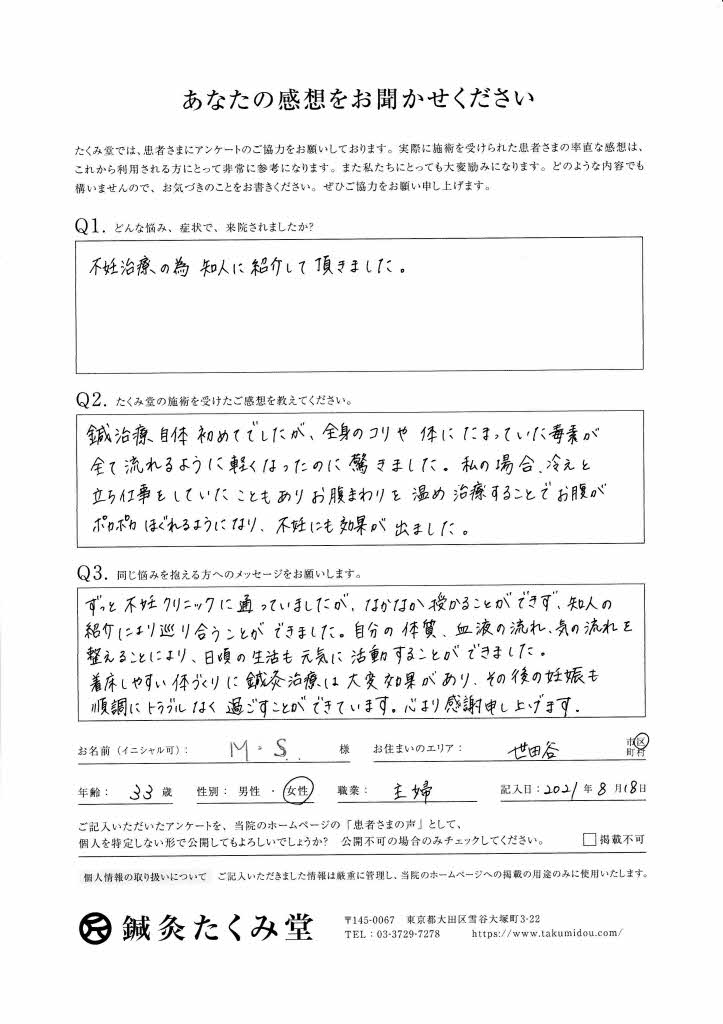 あなたの感想をお聞かせください
たくみ堂では、患者さまにアンケートのご協力をお願いしております。実際に施術を受けられた患者さまの率直な感想は、
これから利用される方にとって非常に参考になります。また私たちにとっても大変励みになります。どのような内容でも
構いませんので、お気づきのことをお書きください。ぜひご協力をお願い申し上げます。
Q1. どんな悩み、症状で、来院されましたか?
不妊治療の為 知人に紹介して頂きました。
Q2. たくみ堂の施術を受けたご感想を教えてください。
鍼治療自体 初めてでしたが、全身のコリや 体にたまっていた毒素が
全て流れるように軽くなったのに驚きました。私の場合、冷えと
立ち仕事をしていたこともありお腹まわりを温め治療することでお腹が
ポカポカほぐれるようになり、不妊にも効果が出ました。
Q3. 同じ悩みを抱える方へのメッセージをお願いします。
ずっと不妊クリニックに通っていましたが、なかなか授かることができず、知人の
紹介により巡り合うことができました。自分の体質、血液の流れ、気の流れを
整えることにより、日頃の生活も元気に活動することができました。
着床しやすい体づくりに鍼灸治療は大変効果があり、その後の妊娠も
順調にトラブルなく過ごすことができています。心より感謝申し上げます。
お名前（イニシャル可）： M・S. 様 お住まいのエリア： 世田谷 市区町村
年齢： 33 歳 性別： 男性 ・ 女性 職業： 主婦 記入日：2021年8月18日
ご記入いただいたアンケートを、当院のホームページの「患者さまの声」として、
個人を特定しない形で公開してもよろしいでしょうか? 公開不可の場合のみチェックしてください。 □掲載不可
個人情報の取り扱いについて ご記入いただきました情報は厳重に管理し、当院のホームページへの掲載の用途のみに使用いたします。
鍼灸たくみ堂
〒145-0067 東京都大田区雪谷大塚町3-22
TEL：03-3729-7278 https://www.takumidou.com/